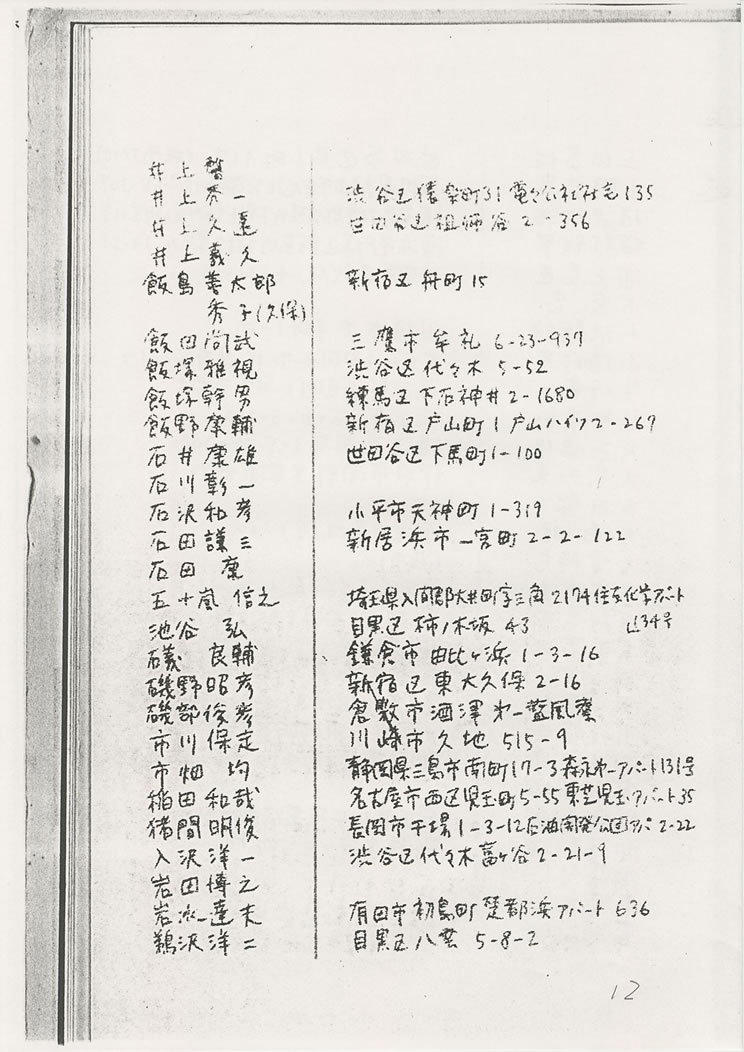 井上
井上秀一 渋谷区猿楽町31 電々公社社宅135
井上久 世田谷区祖師谷2-356
井上義久
飯島善太郎 新宿区舟町15
秀子(久保)
飯田尚武 三鷹市牟礼6-23-937
飯塚雅視 渋谷区代々木5-52
飯塚幹男 練馬区下石神井2-1680
飯野康輔 新宿区戸山町1戸山ハイツ2-267
石井康雄 世田谷区下馬町1-100
石川彰一
石沢和彦 小平市天神町1-319
石田謙三 新居浜市一宮町2-2-122
石田康
五十嵐信之 埼玉県入間郡大井町字三角2174住友化学アパート
134号
池谷弘 目黒区柿ノ木坂43
礒良輔 鎌倉市由比ヶ浜1-3-16
磯野昭彦 新宿区東大久保2-16
磯部俊彦 倉敷市酒津第一藍風寮
市川保定 川崎市久地515-9
市畑均 静岡県三島市南町17-3森永第一アパート131号
稲田和哉 名古屋市西区児玉町5-55東芝児玉アパート35
猪間明俊 長岡市千場1-3-12石油開発公団アパ2-22
入沢洋一 渋谷区代々木富ヶ谷2-21-9
岩田博之
岩永達夫 有田市初島町里都浜アパート636
鵜沢洋二 目黒区八雲5-8-2
12